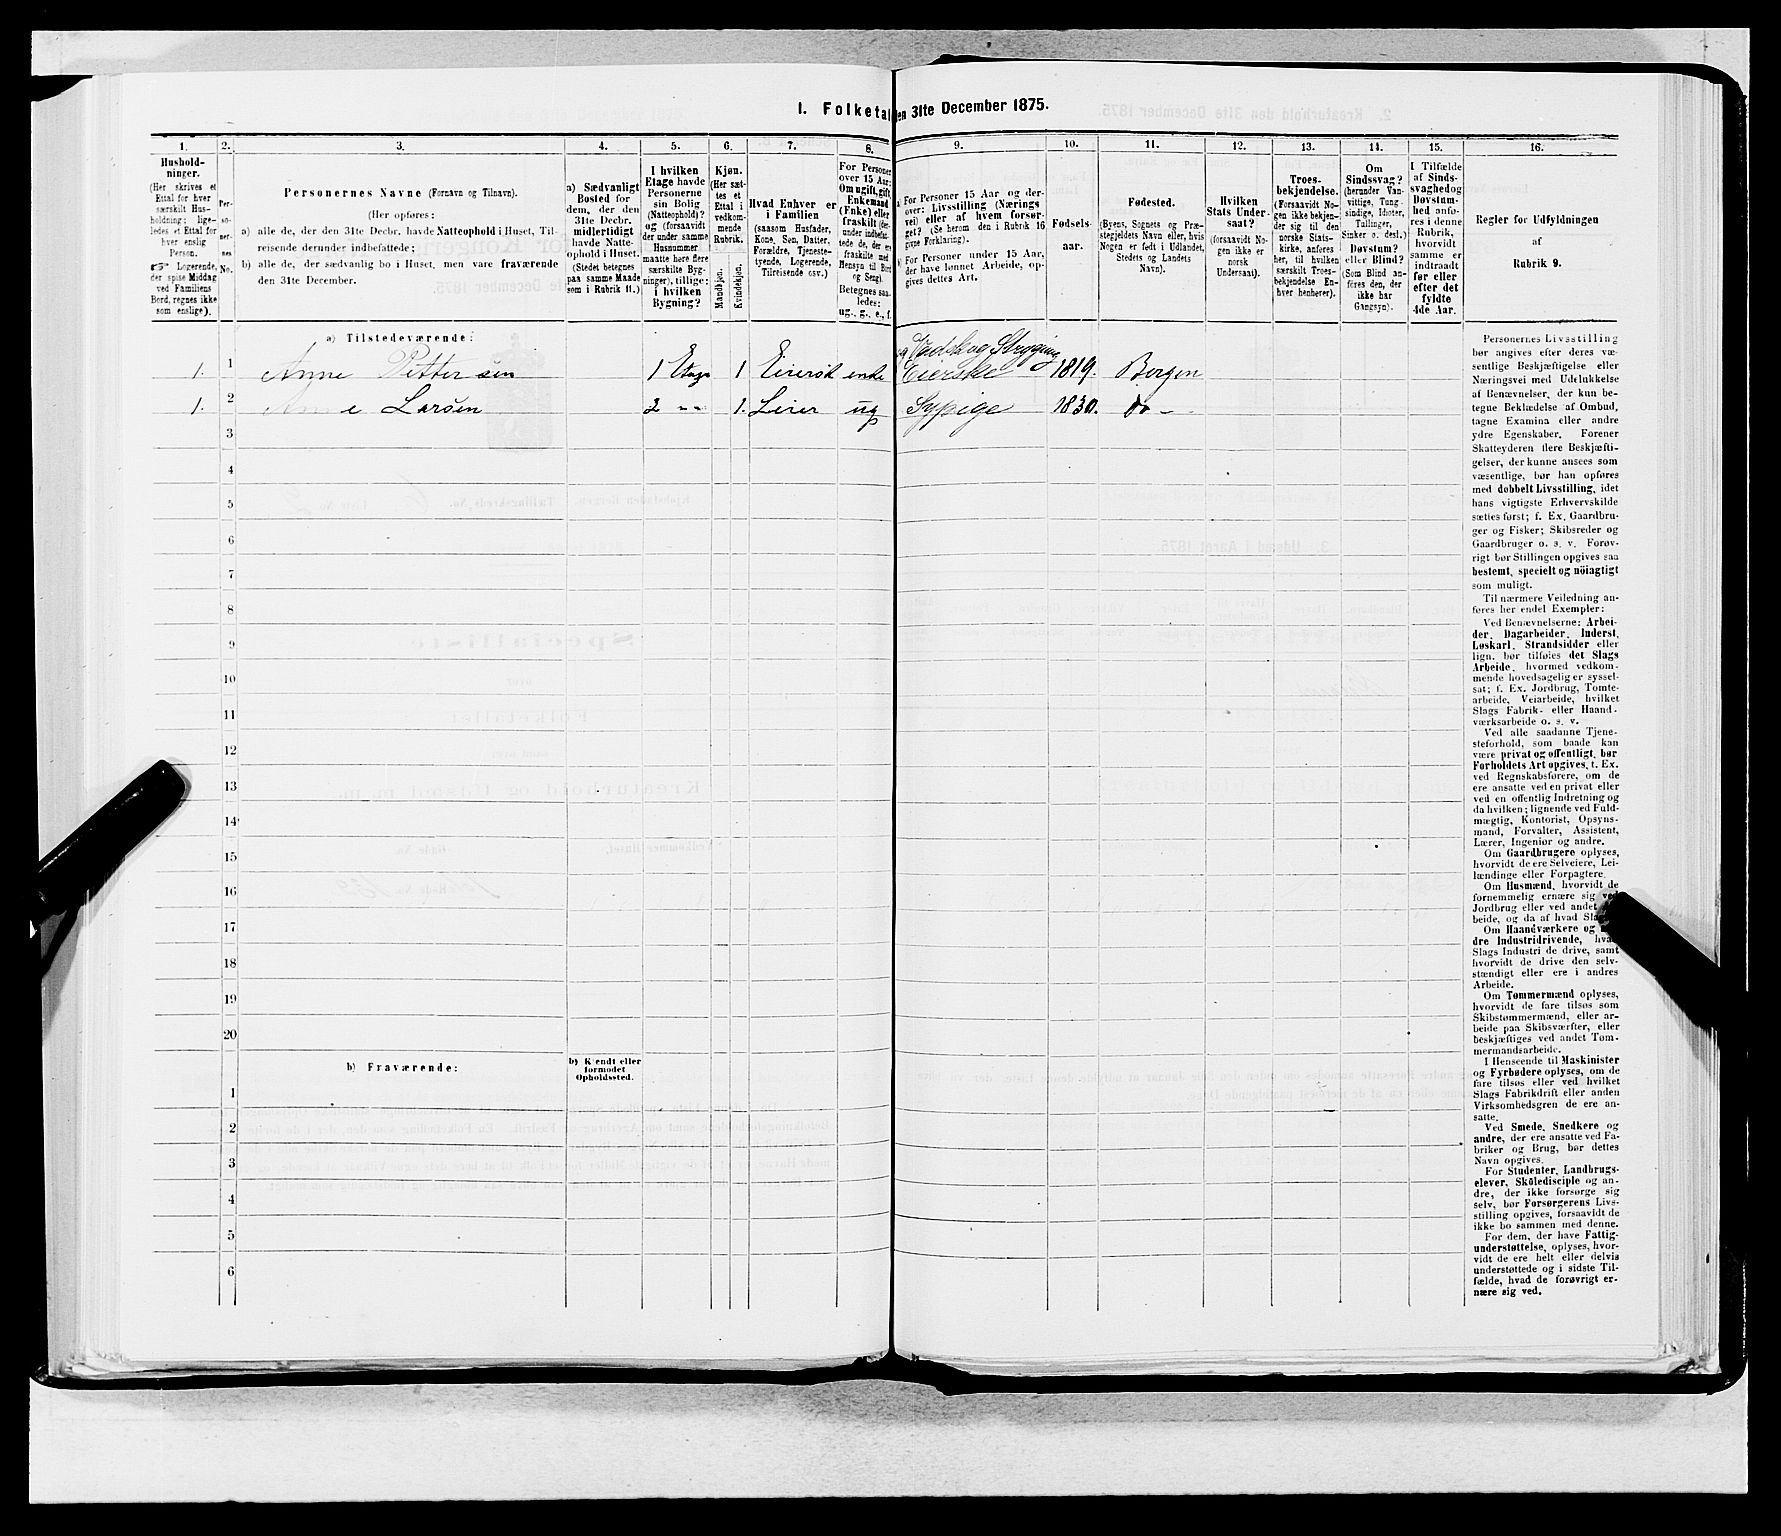 I. Folketal den 31te December 1875.
1.
2.
3.
4.
5.
6.
7.
8.
9.
10.
11.
12.
13.
14.
15.
16.
Hushold-
ninger.
(Her skrives et
Ettal for hver
særskilt Hus-
holdning; lige-
ledes et Ettal for
hver enslig
Person.
☞ Logerende,
der spise Middag
ved Familiens
Bord, regnes ikke
som enslige).
Per-
so-
ner-
nes
No.
Personernes Navne (Fornavn og Tilnavn).
(Her opføres:
a) alle de, der den 31te Decbr. havde Natteophold i Huset, Til-
reisende derunder indbefattede;
b) alle de, der sædvanlig bo i Huset, men vare fraværende
den 31te December.
a) Sædvanligt
Bosted for
dem, der den
31te Decbr.
midlertidigt
havde Natte-
ophold i Huset.
(Stedet betegnes
paa samme Maade
som i Rubrik 11.)
I hvilken
Etage havde
Personerne
sin Bolig
(Natteophold)?
og (forsaavidt
der under samme
Husnummer
maatte høre flere
særskilte Byg-
ninger), tillige:
i hvilken
Bygning?
Kjøn.
(Her sæt-
tes et
Ettal i
vedkom-
mende
Rubrik.
Mandkjøn.
Kvindekjøn.
Hvad Enhver er
i Familien
(saasom Husfader,
Kone, Søn, Datter,
Forældre, Tjeneste-
tyende, Logerende,
Tilreisende osv.)
For Personer
over 15 Aar:
Om ugift, gift,
Enkemand
(Enke) eller
fraskilt (der-
under indbefat-
tede de, der ere
fraskilte med
Hensyn til Bord
og Seng).
Betegnes saa-
ledes:
ug., g., e., f.
a) For Personer 15 Aar og der-
over: Livsstilling (Nærings
vei) eller af hvem forsør-
get? (Se herom den i Rubrik 16
givne Forklaring).
b) For Personer under 15 Aar,
der have lønnet Arbeide, op-
gives dettes Art.
Fødsels-
aar.
Fødested.
(Byens, Sognets og Præ-
stegjeldets Navn eller, hvis
Nogen er født i Udlandet,
Stedets og Landets
Navn).
Hvilken
Stats Under-
saat?
(forsaavidt No-
gen ikke er
norsk
Undersaat).
Troes-
bekjendelse.
(Forsaavidt No-
gen ikke bekjen-
der sig til den
norske Stats-
kirke, anføres
her, til hvilken
særskilt Troes-
bekjendelse En-
hver henhører).
Om
Sindssvag?
(herunder Van-
vittige, Tung-
sindige, Idioter,
Tullinger,
Sinker o. desl.)
Døvstum?
eller Blind?
(Som Blind an-
føres den, der
ikke har
Gangsyn).
I Tilfælde
af Sinds-
svaghed og
Døvstum-
hed anfø-
res i denne
Rubrik,
hvorvidt
samme er
indtraadt
før eller
efter det
fyldte
4de Aar.
Regler for Udfyldningen
af
Rubrik 9.
a) Tilstedeværende:
1. 1 Anne Pettersen 1 Etage 1 Eierske enke Vadsk og Strygning Eierske 1819. Bergen
1. 2 Anne Larsen 2 -"- 1. Leier ug Sypige 1830. do -
3
4
5
6
7
8
9
10
11
12
13
14
15
16
17
18
19
20
b) Fraværende:
b) Kjendt eller
formodet
Opholdssted.
1
2
3
4
5
6
Personernes Livsstilling
bør angives efter deres væ-
sentlige Beskjæftigelse eller
Næringsvei med Udelukkelse
af Benævnelser, der kun be-
tegne Beklædelse af Ombud,
tagne Examina eller andre
ydre Egenskaber. Forener
Skatteyderen flere Beskjæfti-
gelser, der kunne ansees som
væsentlige, bør han opføres
med dobbelt Livsstilling, idet
hans vigtigste Erhvervskilde
sættes først; f. Ex. Gaardbru-
ger og Fisker; Skibsreder og
Gaardbruger o. s. v. Forøv-
rigt bør Stillingen opgives saa
bestemt, specielt og nöiagtigt
som muligt.
Til nærmere Veiledning an-
føres her endel Exempler:
Ved Benævnelserne: Arbei-
der, Dagarbeider, Inderst,
Løskarl, Strandsidder eller
lign. bør tilføies det Slags
Arbeide, hvormed vedkom-
mende hovedsagelig er syssel-
sat; f. Ex. Jordbrug, Tomte-
arbeide, Veiarbeide, hvilket
Slags Fabrik- eller Haand-
værksarbeide o. s. v.
Ved alle saadanne Tjene-
steforhold, som baade kan
være privat og offentligt, bør
Forholdets Art opgives, t. Ex.
ved Regnskabsførere, om de
ere ansatte ved en privat eller
ved en offentlig Indretning og
da hvilken; lignende ved Fuld-
mægtig, Kontorist, Opsyns-
mand, Forvalter, Assistent,
Lærer, Ingeniør og andre.
Om Gaardbrugere oplyses,
hvorvidt de ere Selveiere, Lei-
lændinge eller Forpagtere.
Om Husmænd, hvorvidt de
fornemmelig ernære sig ved
Jordbrug eller ved andet
beide, og da af hvad
Om Haandværkere og
dre Industridrivende,
Slags Industri de drive, samt
hvorvidt de drive den selv-
stændigt eller ere i andres
Arbeide.
Om Tømmermænd oplyses,
hvorvidt de fare tilsøs som
Skibstømmermænd, eller ar-
beide paa Skibsværfter, eller
beskjæftiges ved andet Tøm-
mermandsarbeide.
I Henseende til Maskinister
og Fyrbødere oplyses, om de
fare tilsøs eller ved hvilket
Slags Fabrikdrift eller anden
Virksomhedsgren de ere an-
satte.
Ved Smede, Snedkere og
andre, der ere ansatte ved Fa-
briker og Brug, bør dettes
Navn opgives.
For Studenter, Landbrugs-
elever, Skoledisciple og an-
dre, der ikke forsørge sig
selv, bør Forsørgerens Livs-
stilling opgives, forsaavidt de
ikke bo sammen med denne.
For dem, der have Fattig-
understøttelse, oplyses, hvor-
vidt de ere helt eller delvis
understøttede og i sidste Til-
fælde, hvad de forøvrigt er-
nære sig ved.